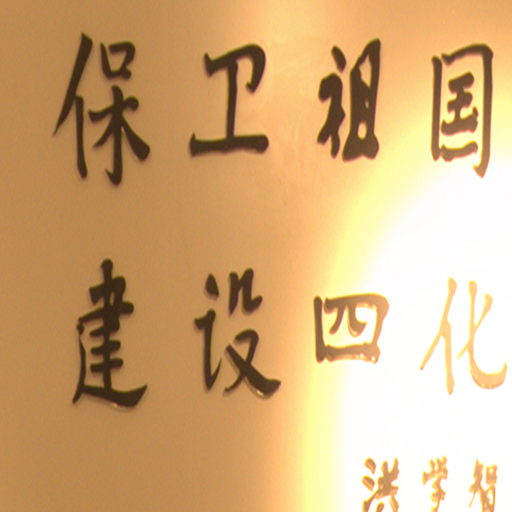 保卫祖国
建设四化
洪学智